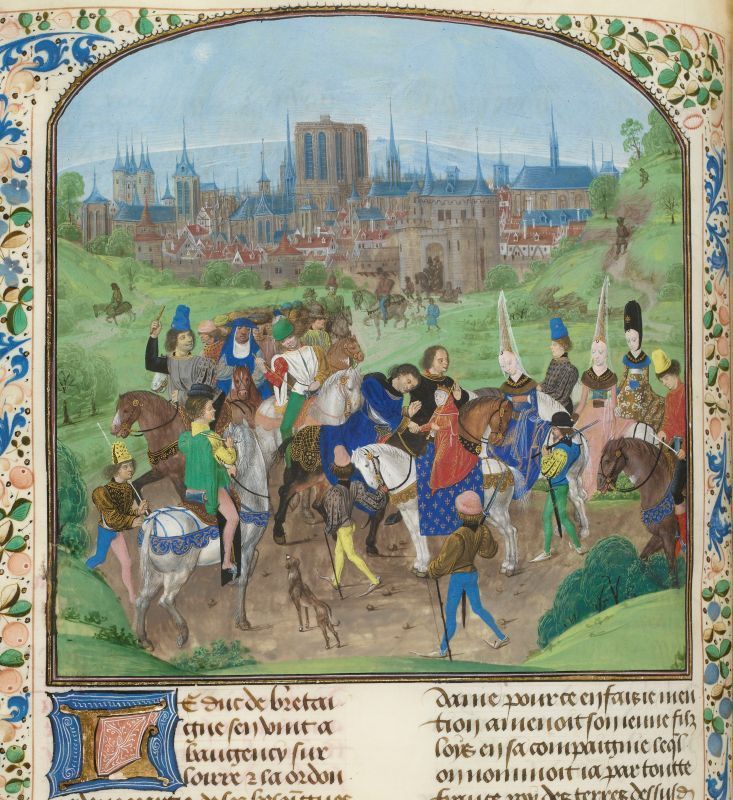 Le duc de bretai
gne sen vint a
baugency sur
loirre & la ordon
dame pource en faisie men
tion amenoit son ienne filz
loys en sa compaignie leql
on nommoit ia par toutte
france roy des terres dessusd